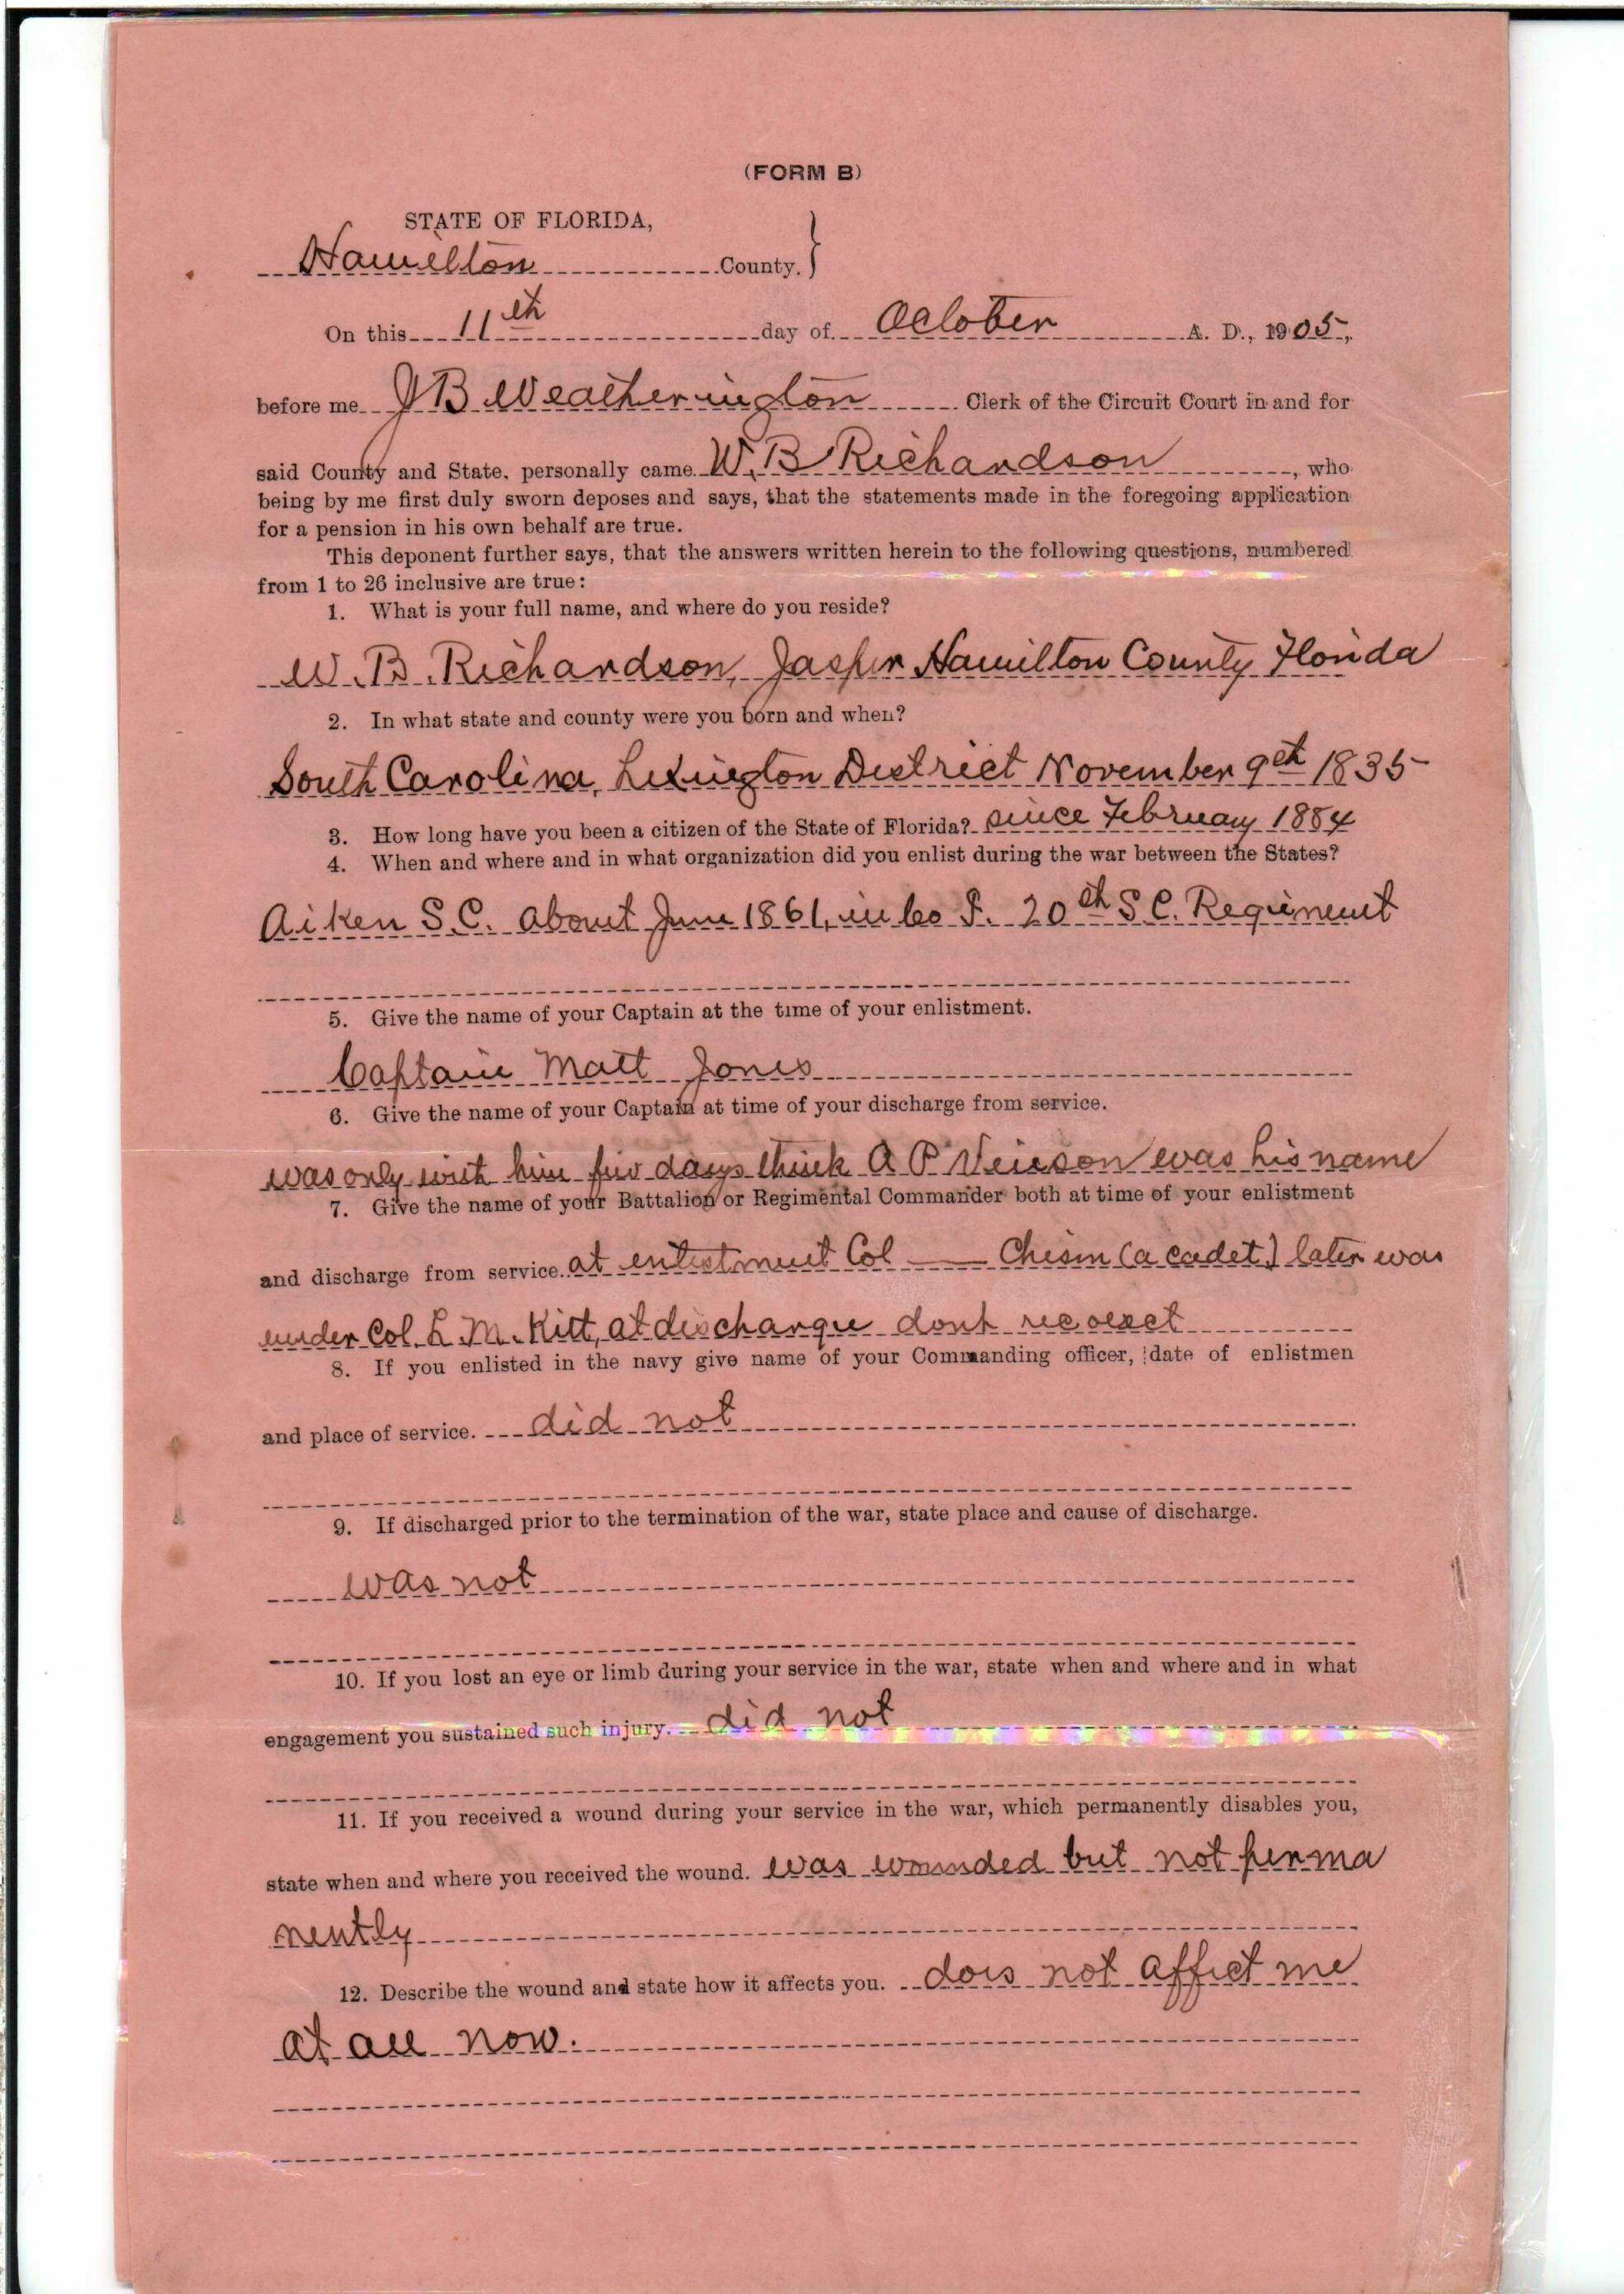 (FORM B)
STATE OF FLORIDA,
Hamilton County. }
On this 11th day of October A. D., 1905,
before me J B Weatherington Clerk of the Circuit Court in and for
said County and State, personally came W. B Richardson, who
being by me first duly sworn deposes and says, that the statements made in the foregoing application
for a pension in his own behalf are true.
This deponent further says, that the answers written herein to the following questions, numbered
from 1 to 26 inclusive are true:
1. What is your full name, and where do you reside?
W. B. Richardson, Jasper Hamilton County Florida
2. In what state and county were you born and when?
South Carolina, Lexington District November 9th 1835
3. How long have you been a citizen of the State of Florida? since February 1884
4. When and where and in what organization did you enlist during the war between the States?
Aiken S.C. about June 1861, in Co 20th S C. Regiment
5. Give the name of your Captain at the time of your enlistment.
Captain Matt Jones
6. Give the name of your Captain at time of your discharge from service.
was only with him few days think A P was his name
7. Give the name of your Battalion or Regimental Commander both at time of your enlistment
and discharge from service. at enlistment Col —— Chism (a cadet) later was
under Col. L. M. Kitt, at discharge dont
8. If you enlisted in the navy give name of your Commanding officer, date of enlistmen
and place of service. did not
9. If discharged prior to the termination of the war, state place and cause of discharge.
was not
10. If you lost an eye or limb during your service in the war, state when and where and in what
engagement you sustained such injury. did not
11. If you received a wound during your service in the war, which permanently disables you,
state when and where you received the wound. was wounded but not perma
nently
12. Describe the wound and state how it affects you. does not affect me
at all now.